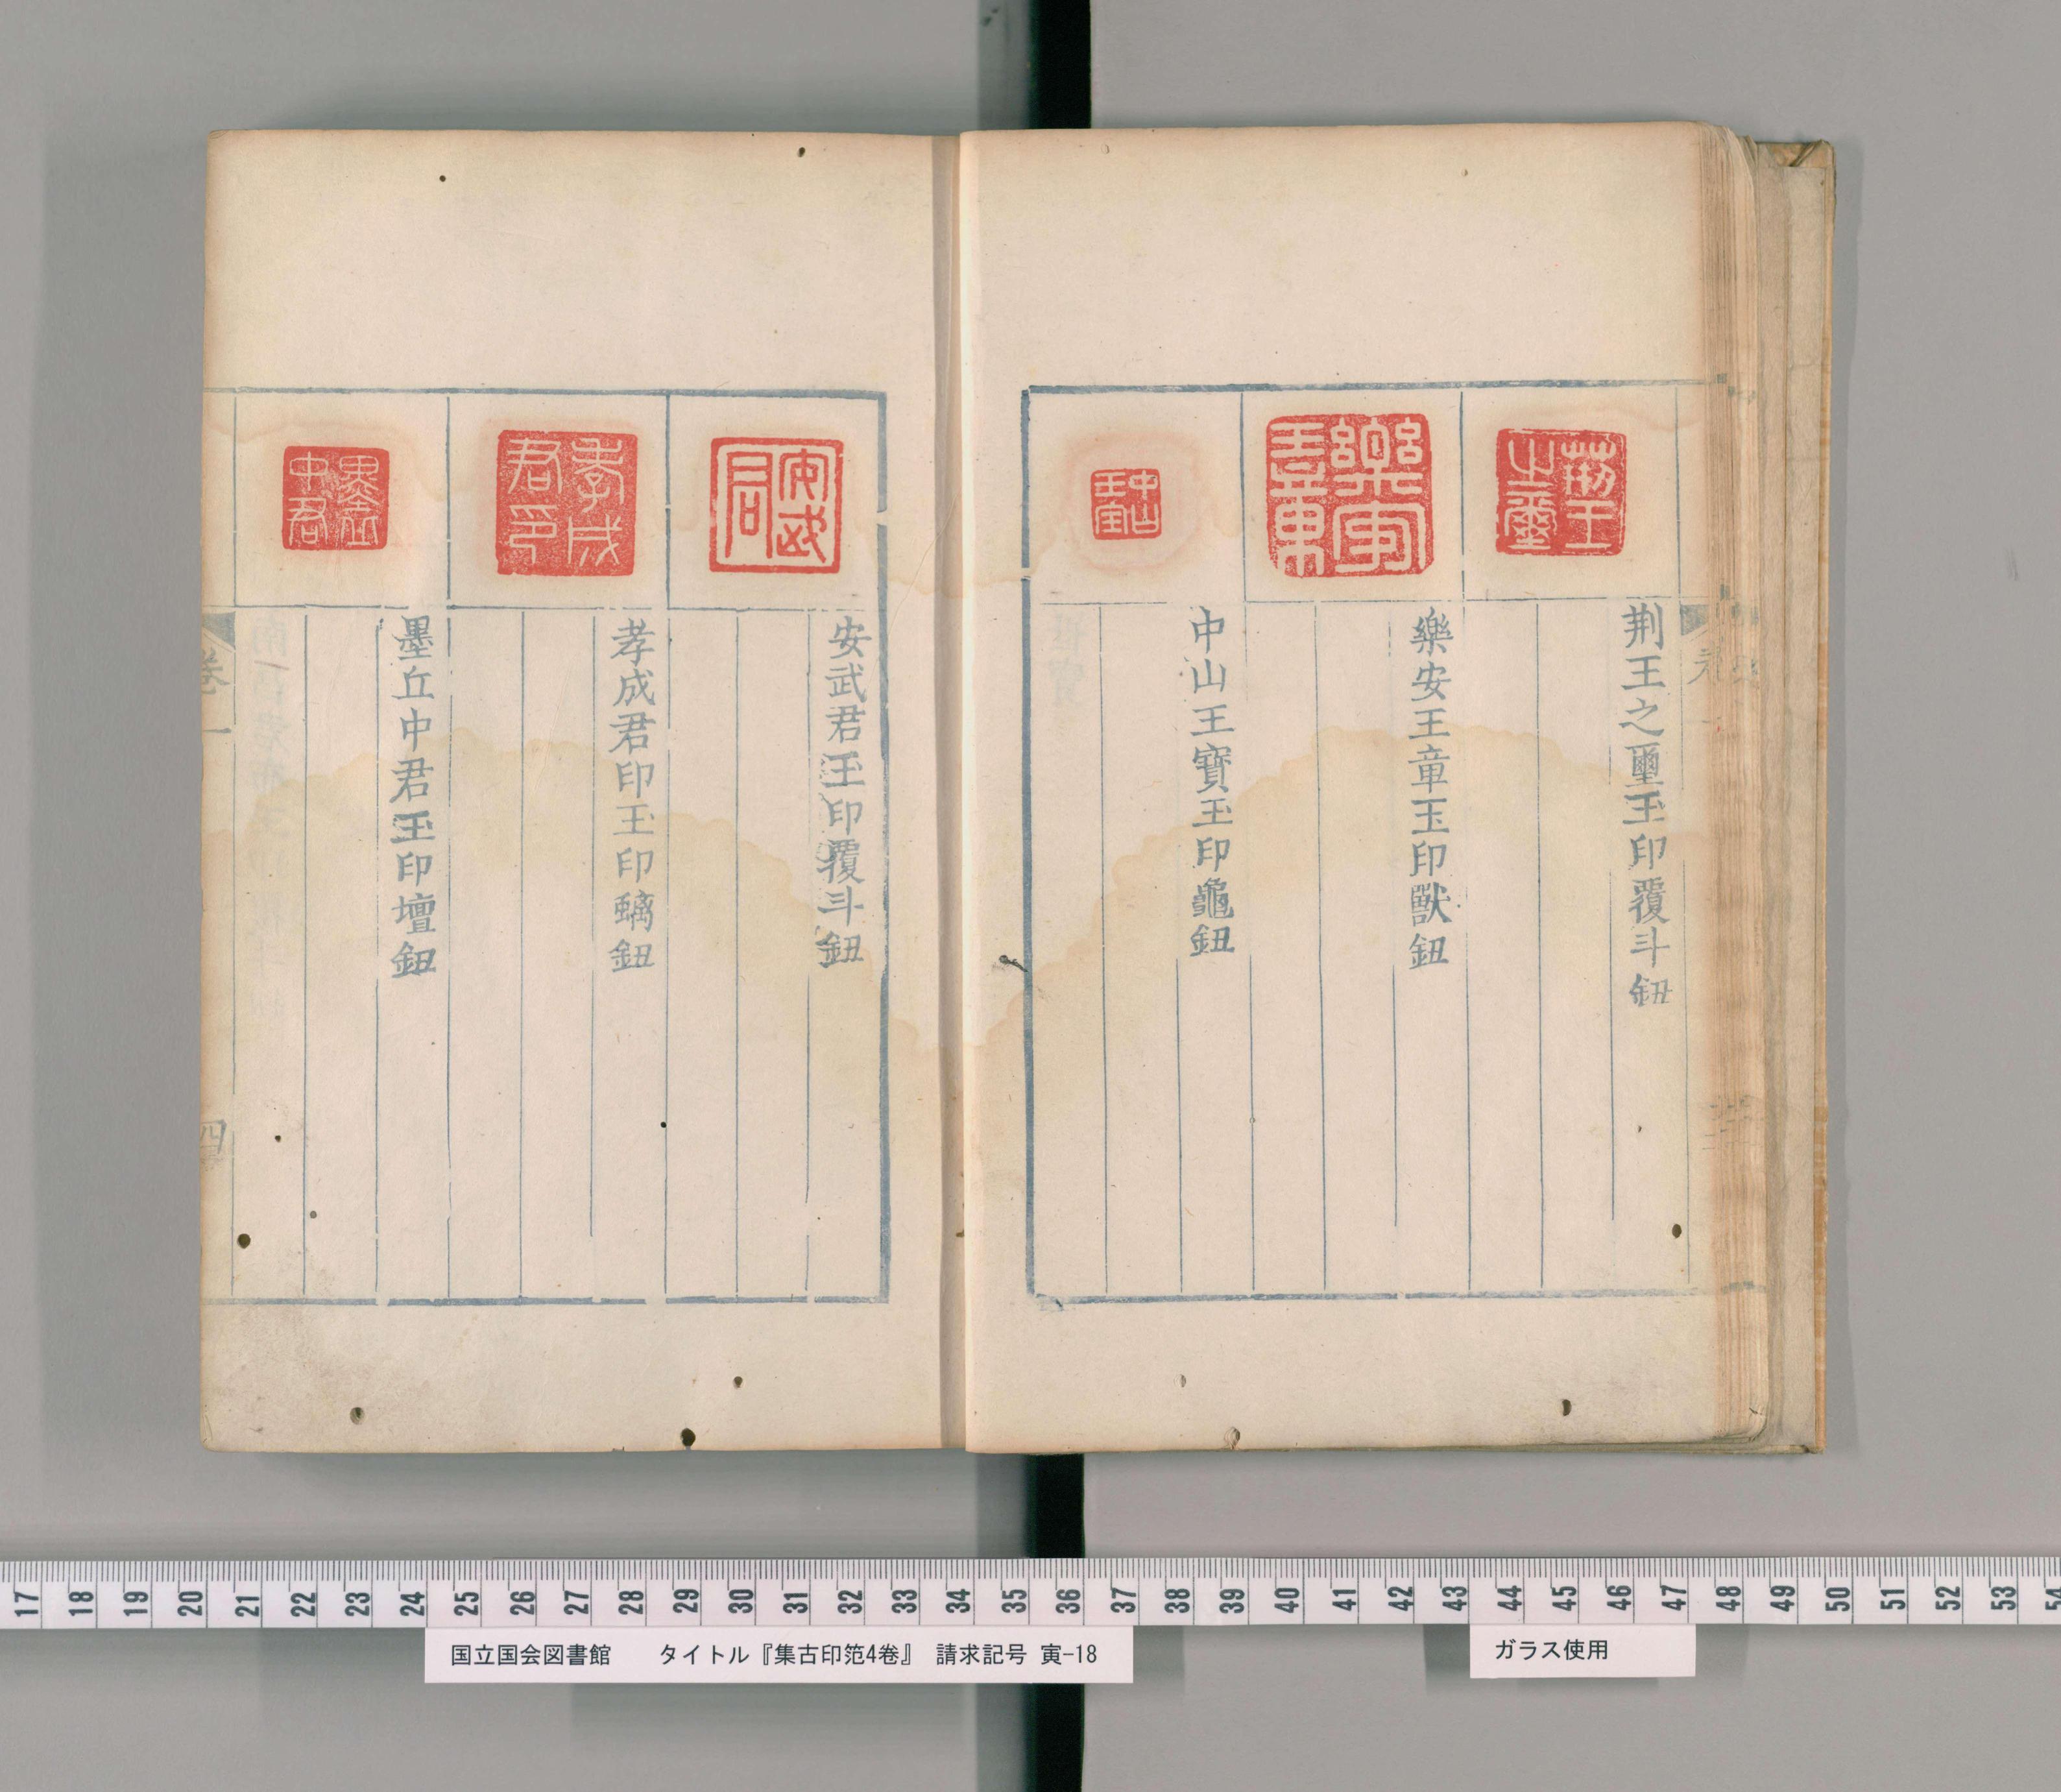 荆王之璽玉印覆斗鈕
樂安王章玉印獸鈕
中山王寶玉印龜鈕
安武君玉印覆斗鈕
孝成君印玉印螭鈕
墨丘中君玉印壇鈕
荊王之璽
樂安王章
中山王宝
安武君
孝成君印
卷一
四
17 18 19 20 21 22 23 24 25 26 27 28 29 30 31 32 33 34 35 36 37 38 39 40 41 42 43 44 45 46 47 48 49 50 51 52 53 54
国立国会図書館 タイトル『集古印笵4巻』 請求記号 寅-18
ガラス使用